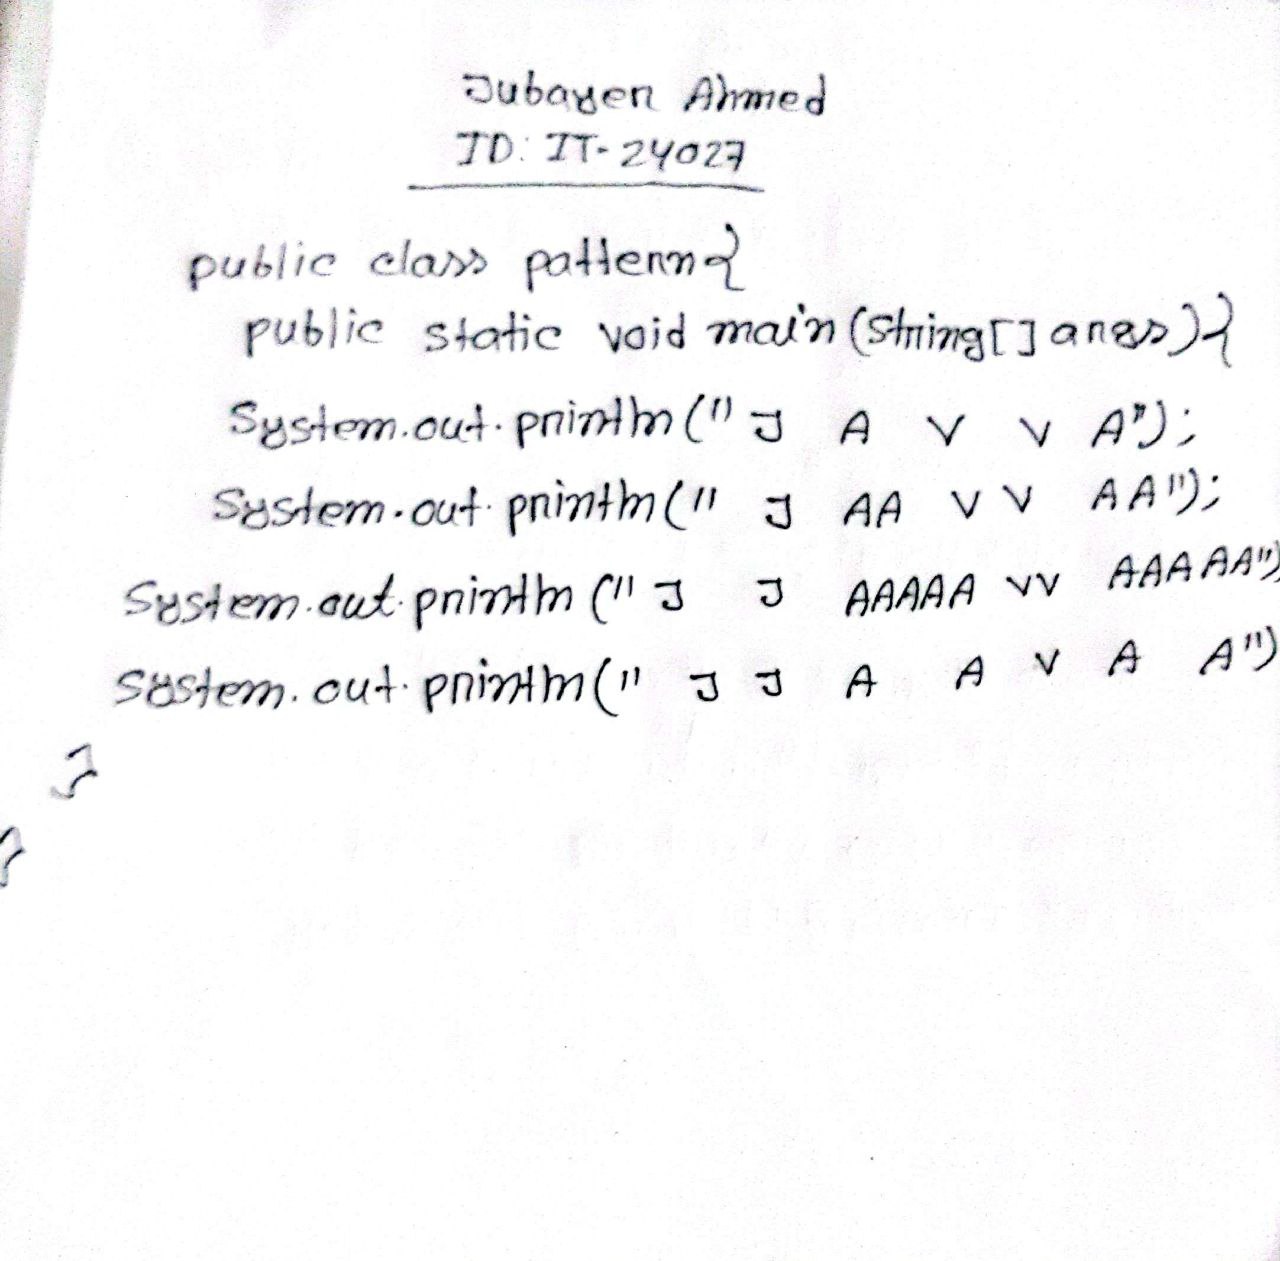 Jubayer Ahmed
ID: IT-24027
public class pattern{
public static void main(String[] args){
System.out.println(" J A V V A");
System.out.println(" J AA V V AA");
System.out.println(" J J AAAAA VV AAAAA")
System.out.println(" J J A A V A A")
}
}